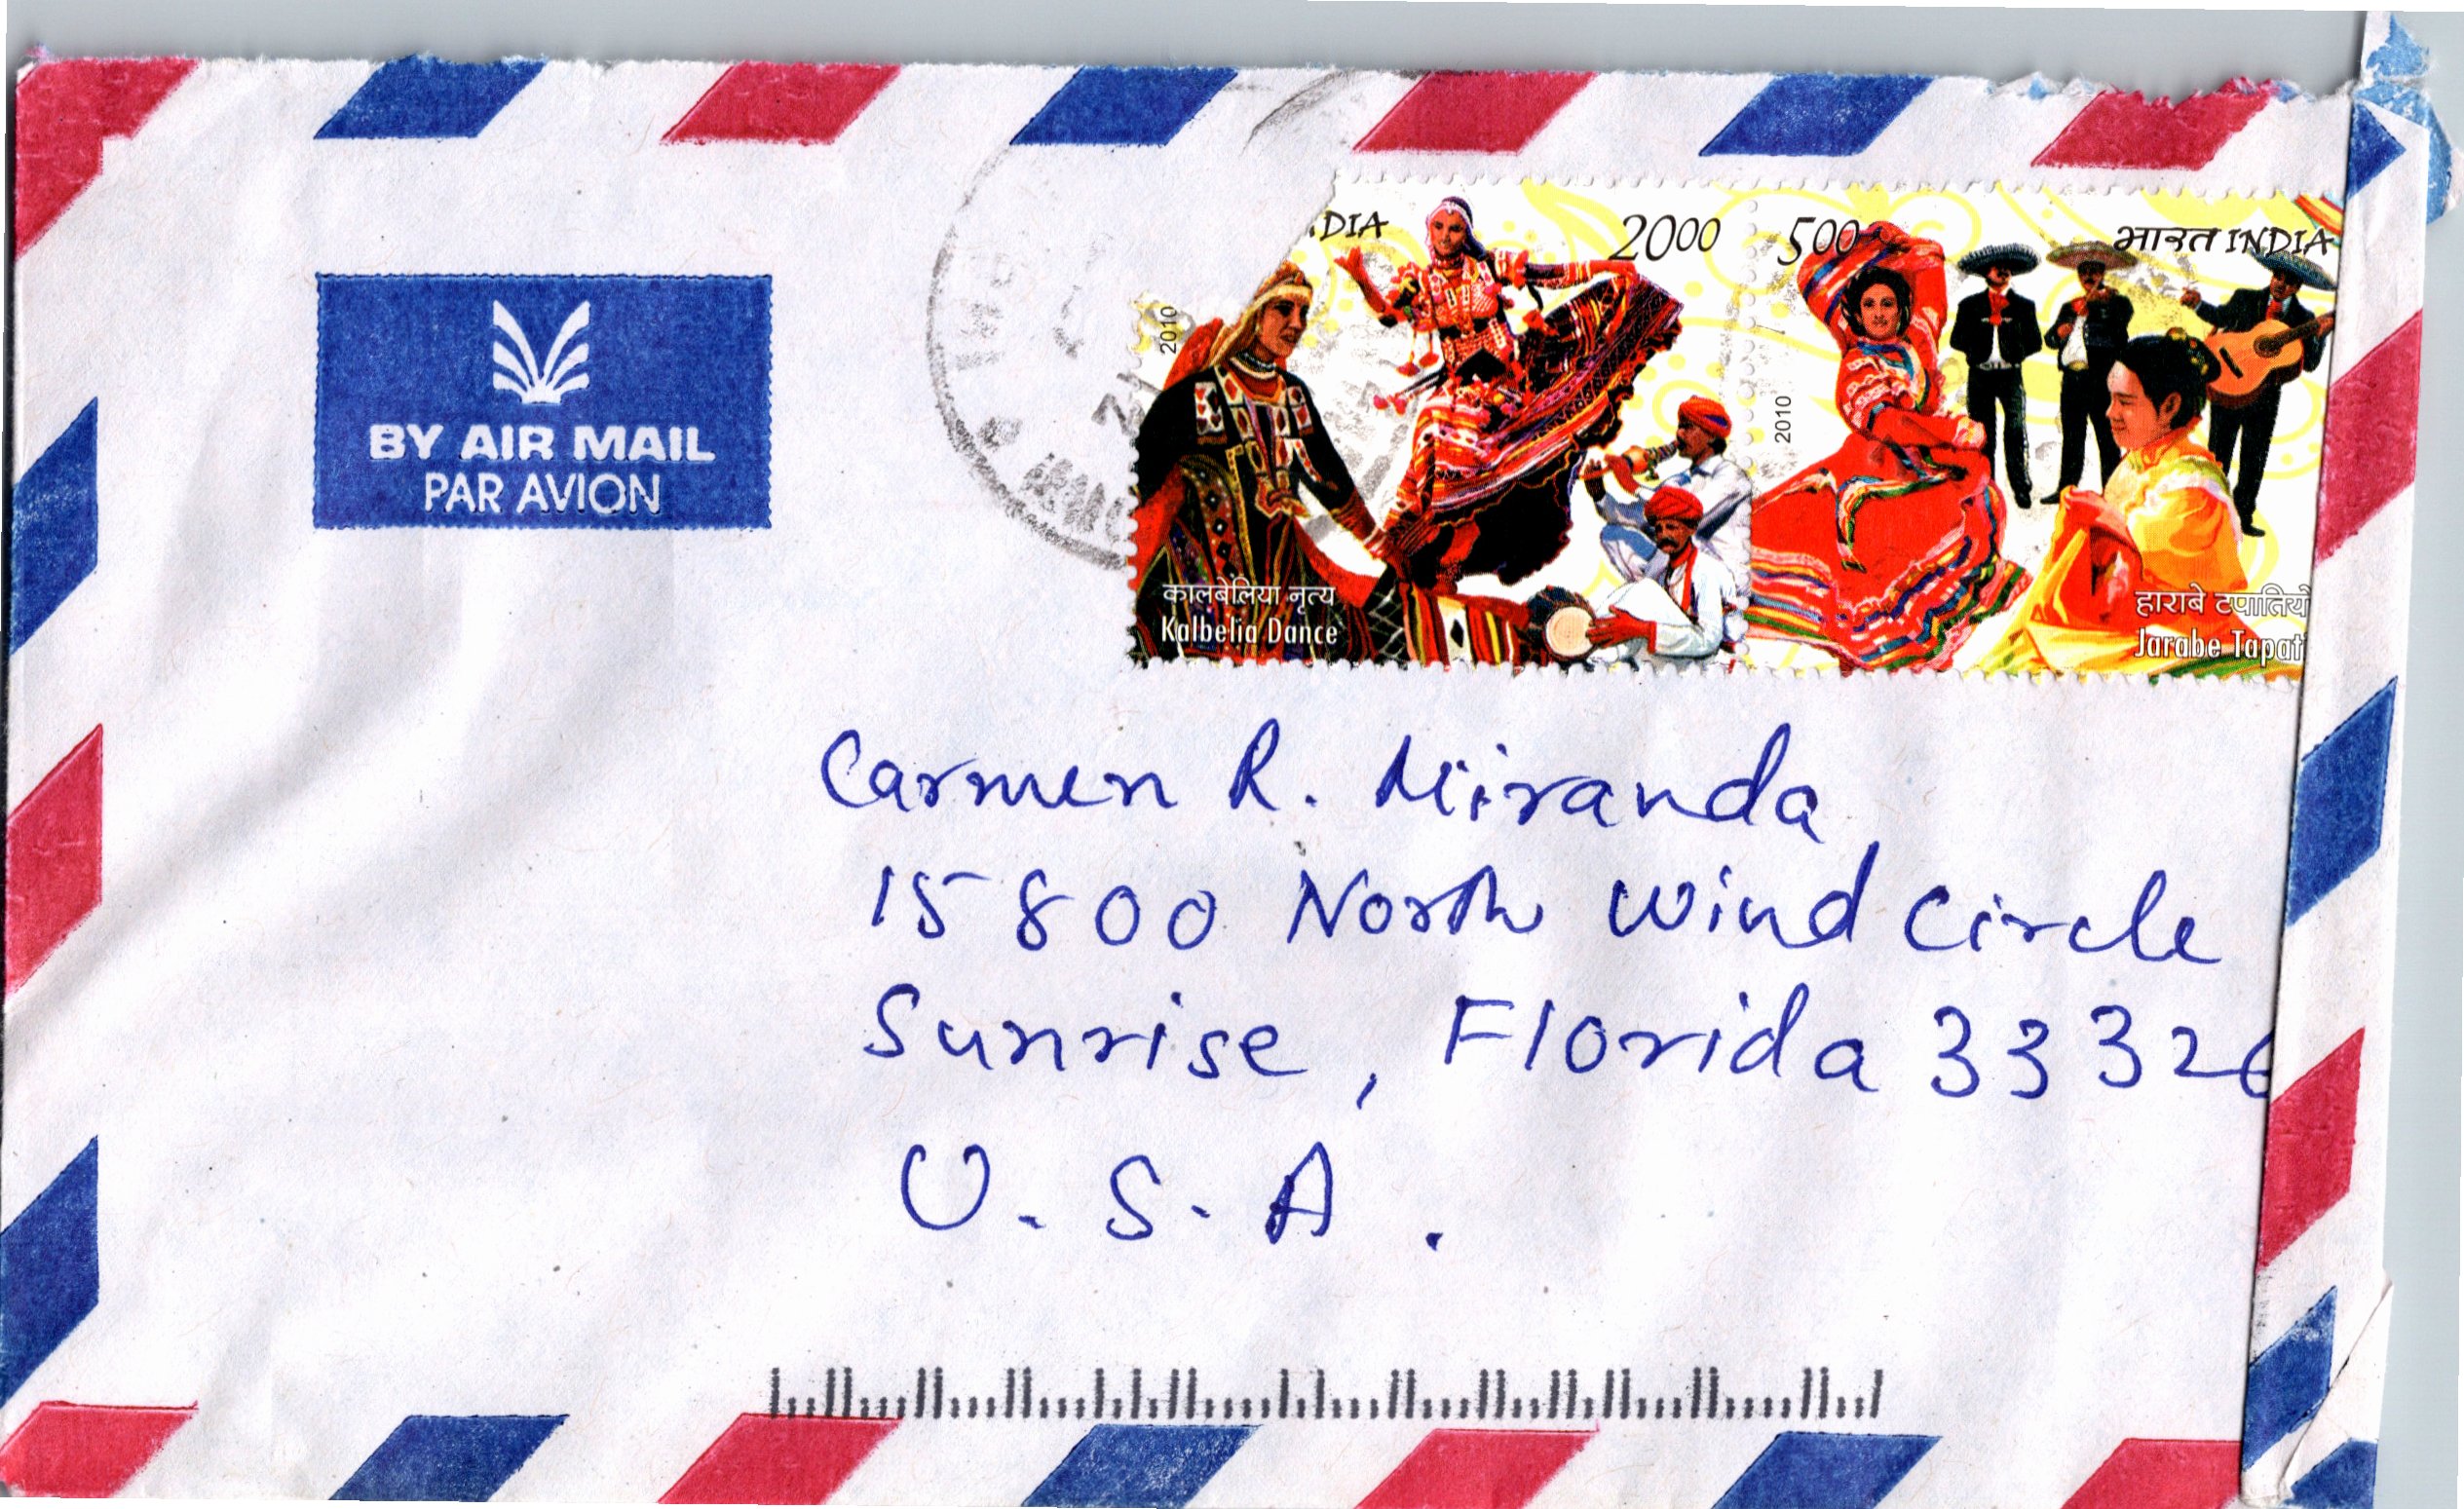 BY AIR MAIL
PAR AVION
DIA 2000
2010
कालबेलिया नृत्य
Kalbelia Dance
500 भारत INDIA
2010
हाराबे टपातियो
Jarabe Tapat
Carmen R. Miranda
15800 North Wind Circle
Sunrise, Florida 33326
U.S.A.